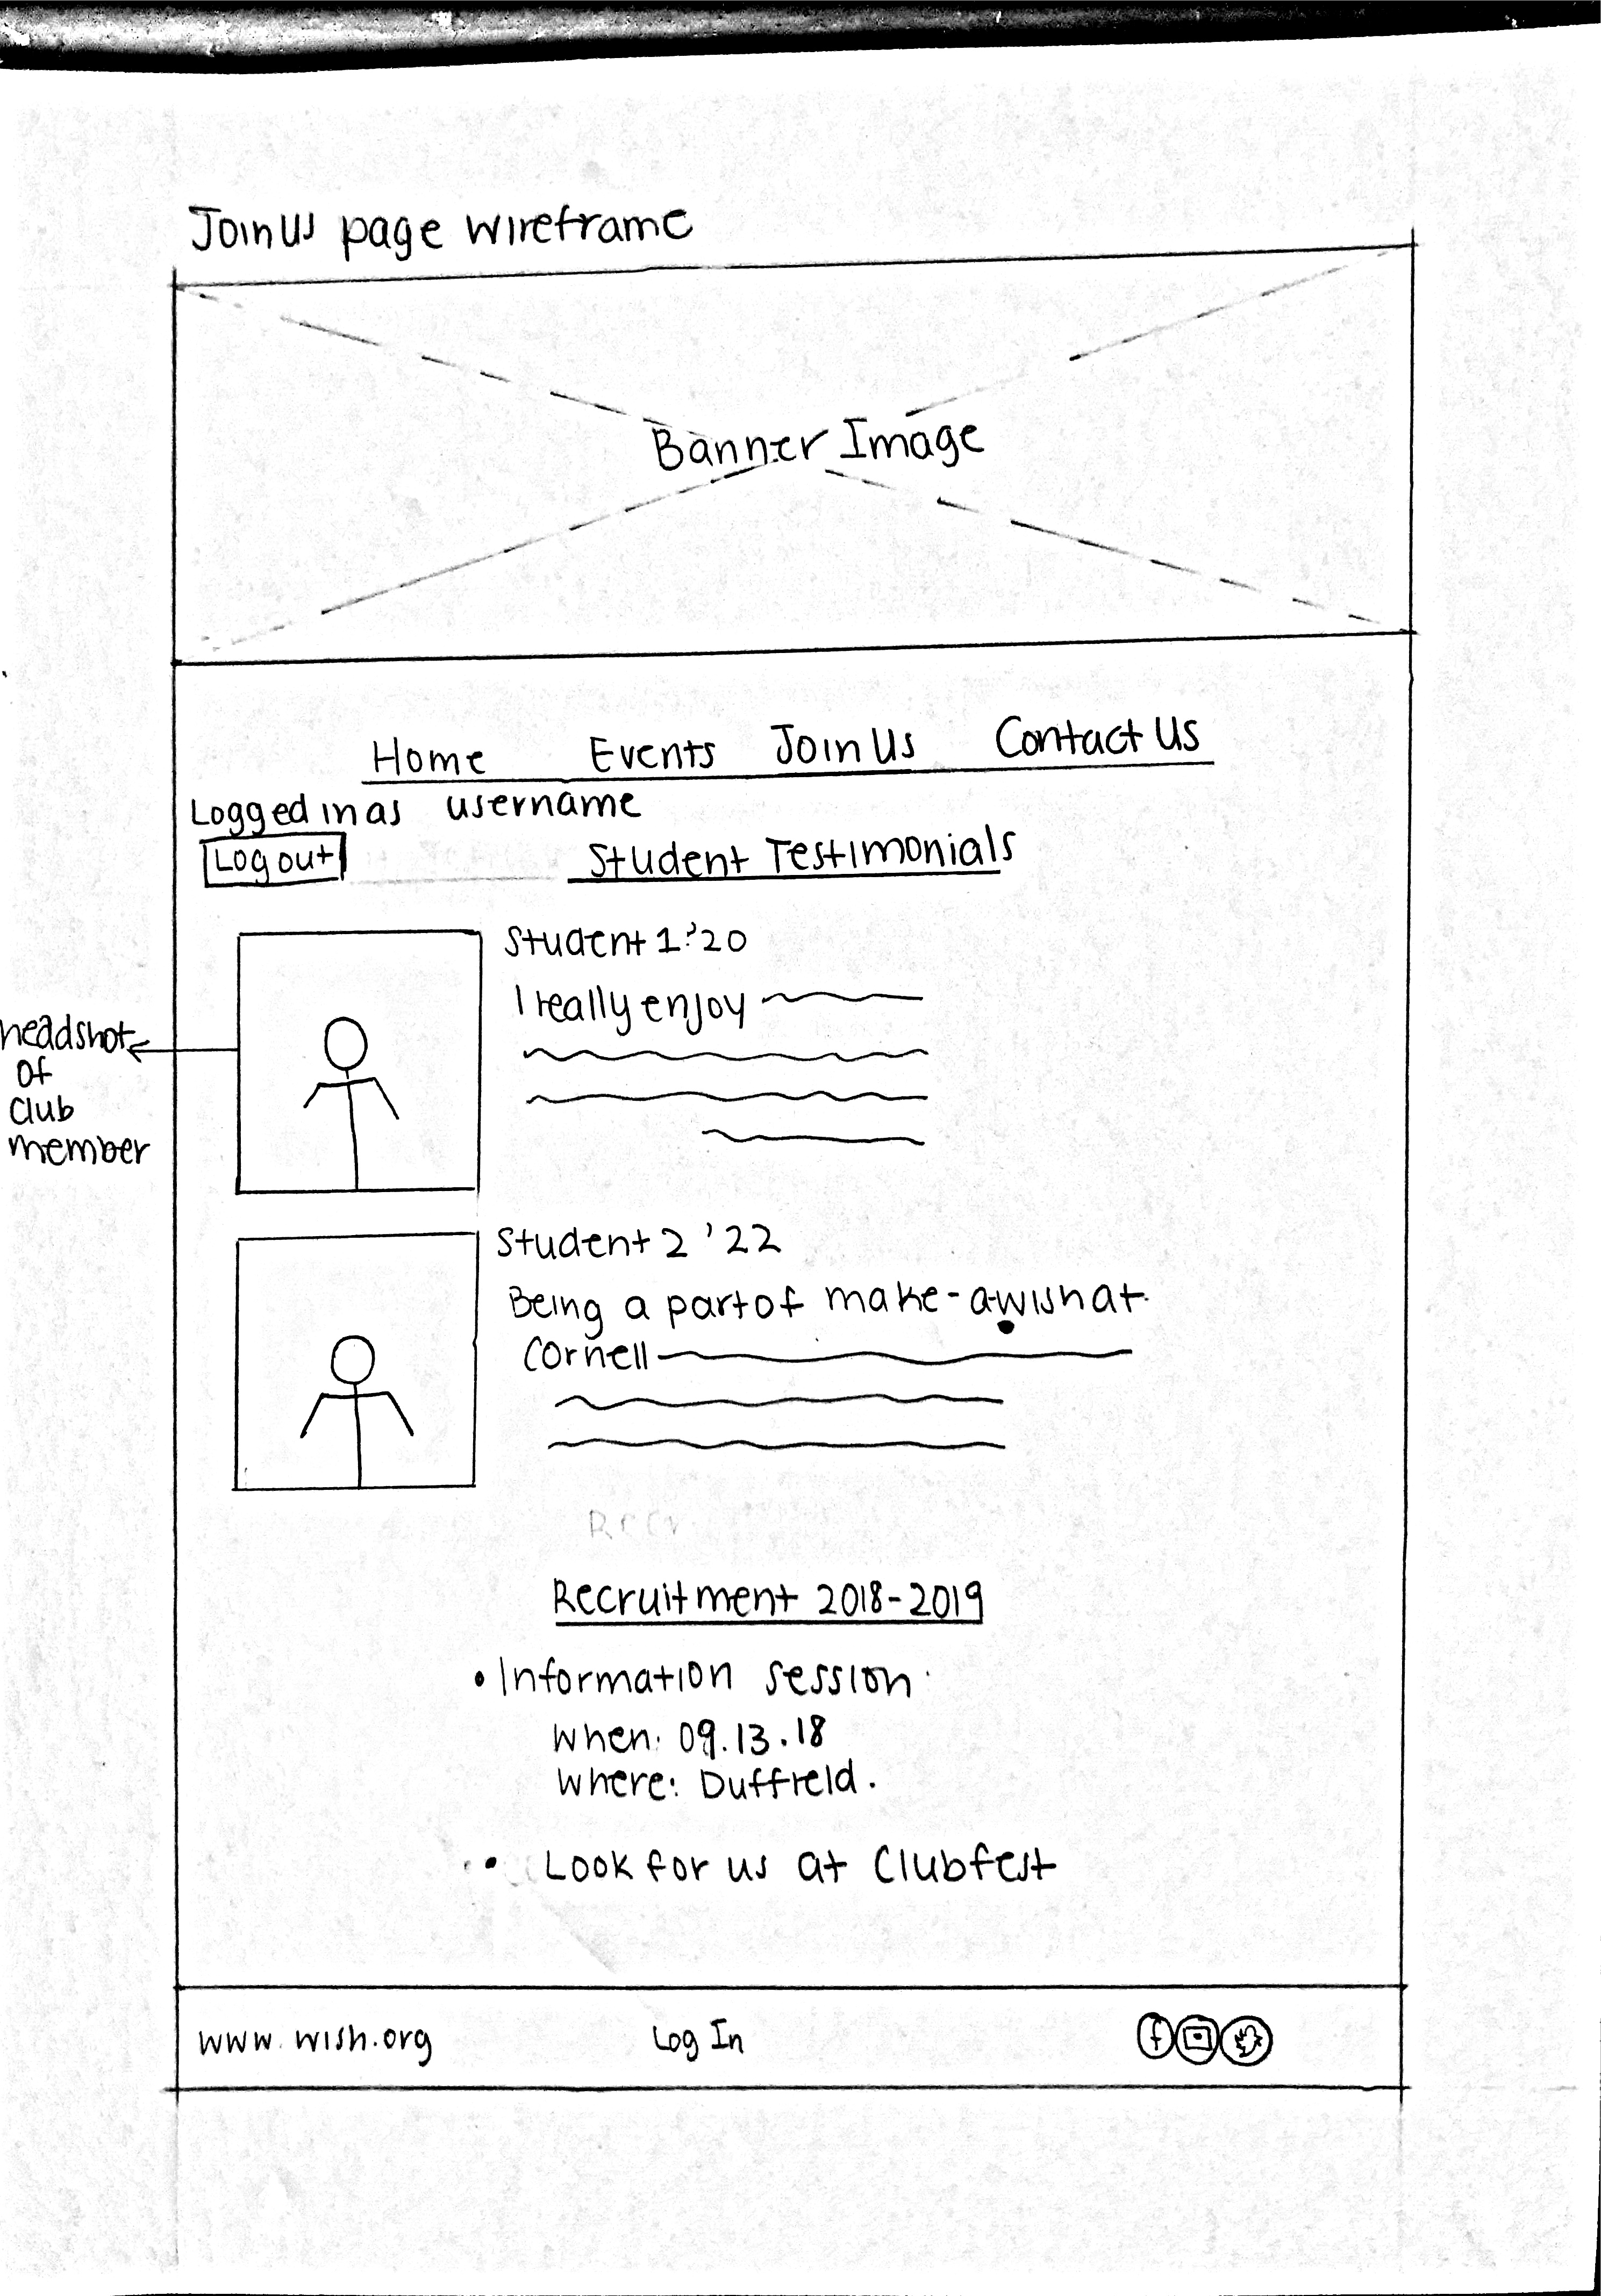 Join Us page wireframe
Banner Image
Home Events Join Us Contact Us
Logged in as username
Log out
Student Testimonials
Student 1 '20
I really enjoy
headshot
of
club
member
Student 2 '22
Being a part of make-a-wish at
Cornell
Recruitment 2018-2019
• Information session
When: 09.13.18
Where: Duffield.
• Look for us at Clubfest
www.wish.org Log In f